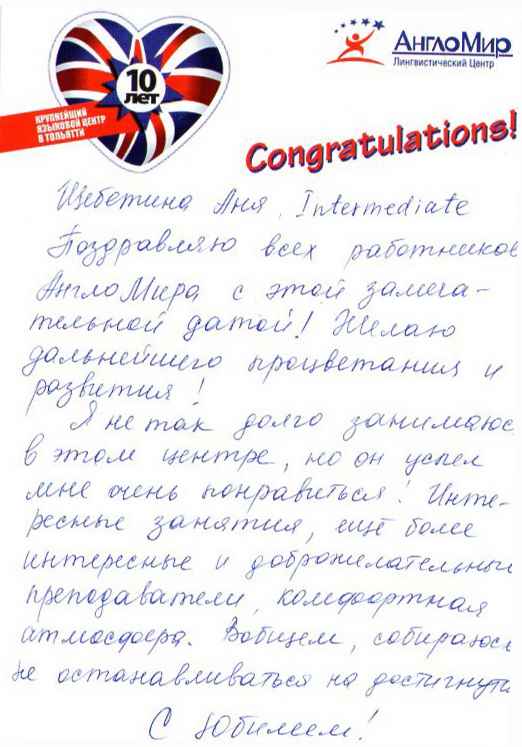 АнглоМир
Лингвистический Центр
10
лет
КРУПНЕЙШИЙ
ЯЗЫКОВОЙ ЦЕНТР
В ТОЛЬЯТТИ
Congratulations!
Щебетина Аня, Intermediate
Поздравляю всех работников
АнглоМира с этой замеча-
тельной датой! Желаю
дальнейшего процветания и
развития!
Я не так долго занимаюс
в этом центре, но он успел
мне очень понравиться! Инте-
ресные занятия, ещё более
интересные и доброжелательны
преподаватели, комфортная
атмосфера. Вобщем, собираюсь
не останавливаться на достигнут
С Юбилеем!